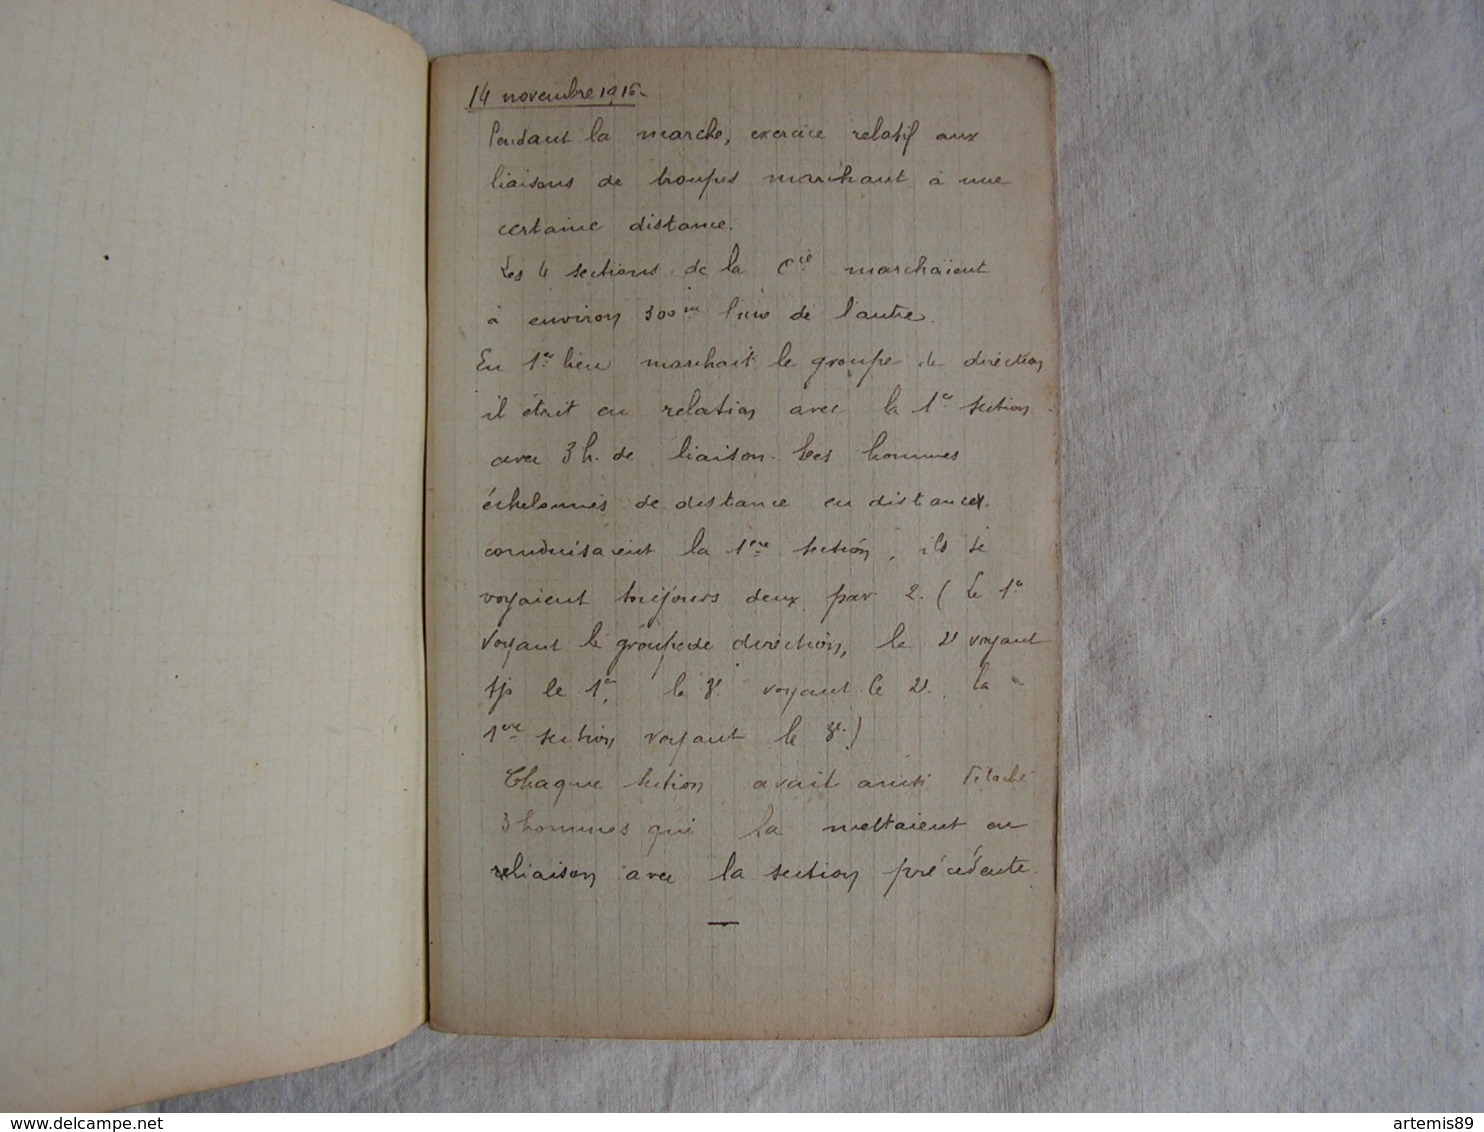 14 novembre 1916.
Pendant la marche, exercice relatif aux
liaisons de troupes marchant à une
certaine distance.
Les 4 sections de la Cie marchaient
à environ 300m l'une de l'autre.
En 1er lieu marchait le groupe de direction
il était en relation avec la 1e section
avec 3 h. de liaison. Les hommes
échelonnés de distance en distance
conduisaient la 1ère section, ils se
voyaient toujours deux par 2. (Le 1e
voyant le groupe de direction, le 2e voyant
tjs le 1e, le 3e voyant le 2e, la
1ère section voyant le 3e.)
Chaque section avait ainsi détaché
3 hommes qui la mettaient en
reliaison avec la section précédente.
www.delcampe.net
artemis89